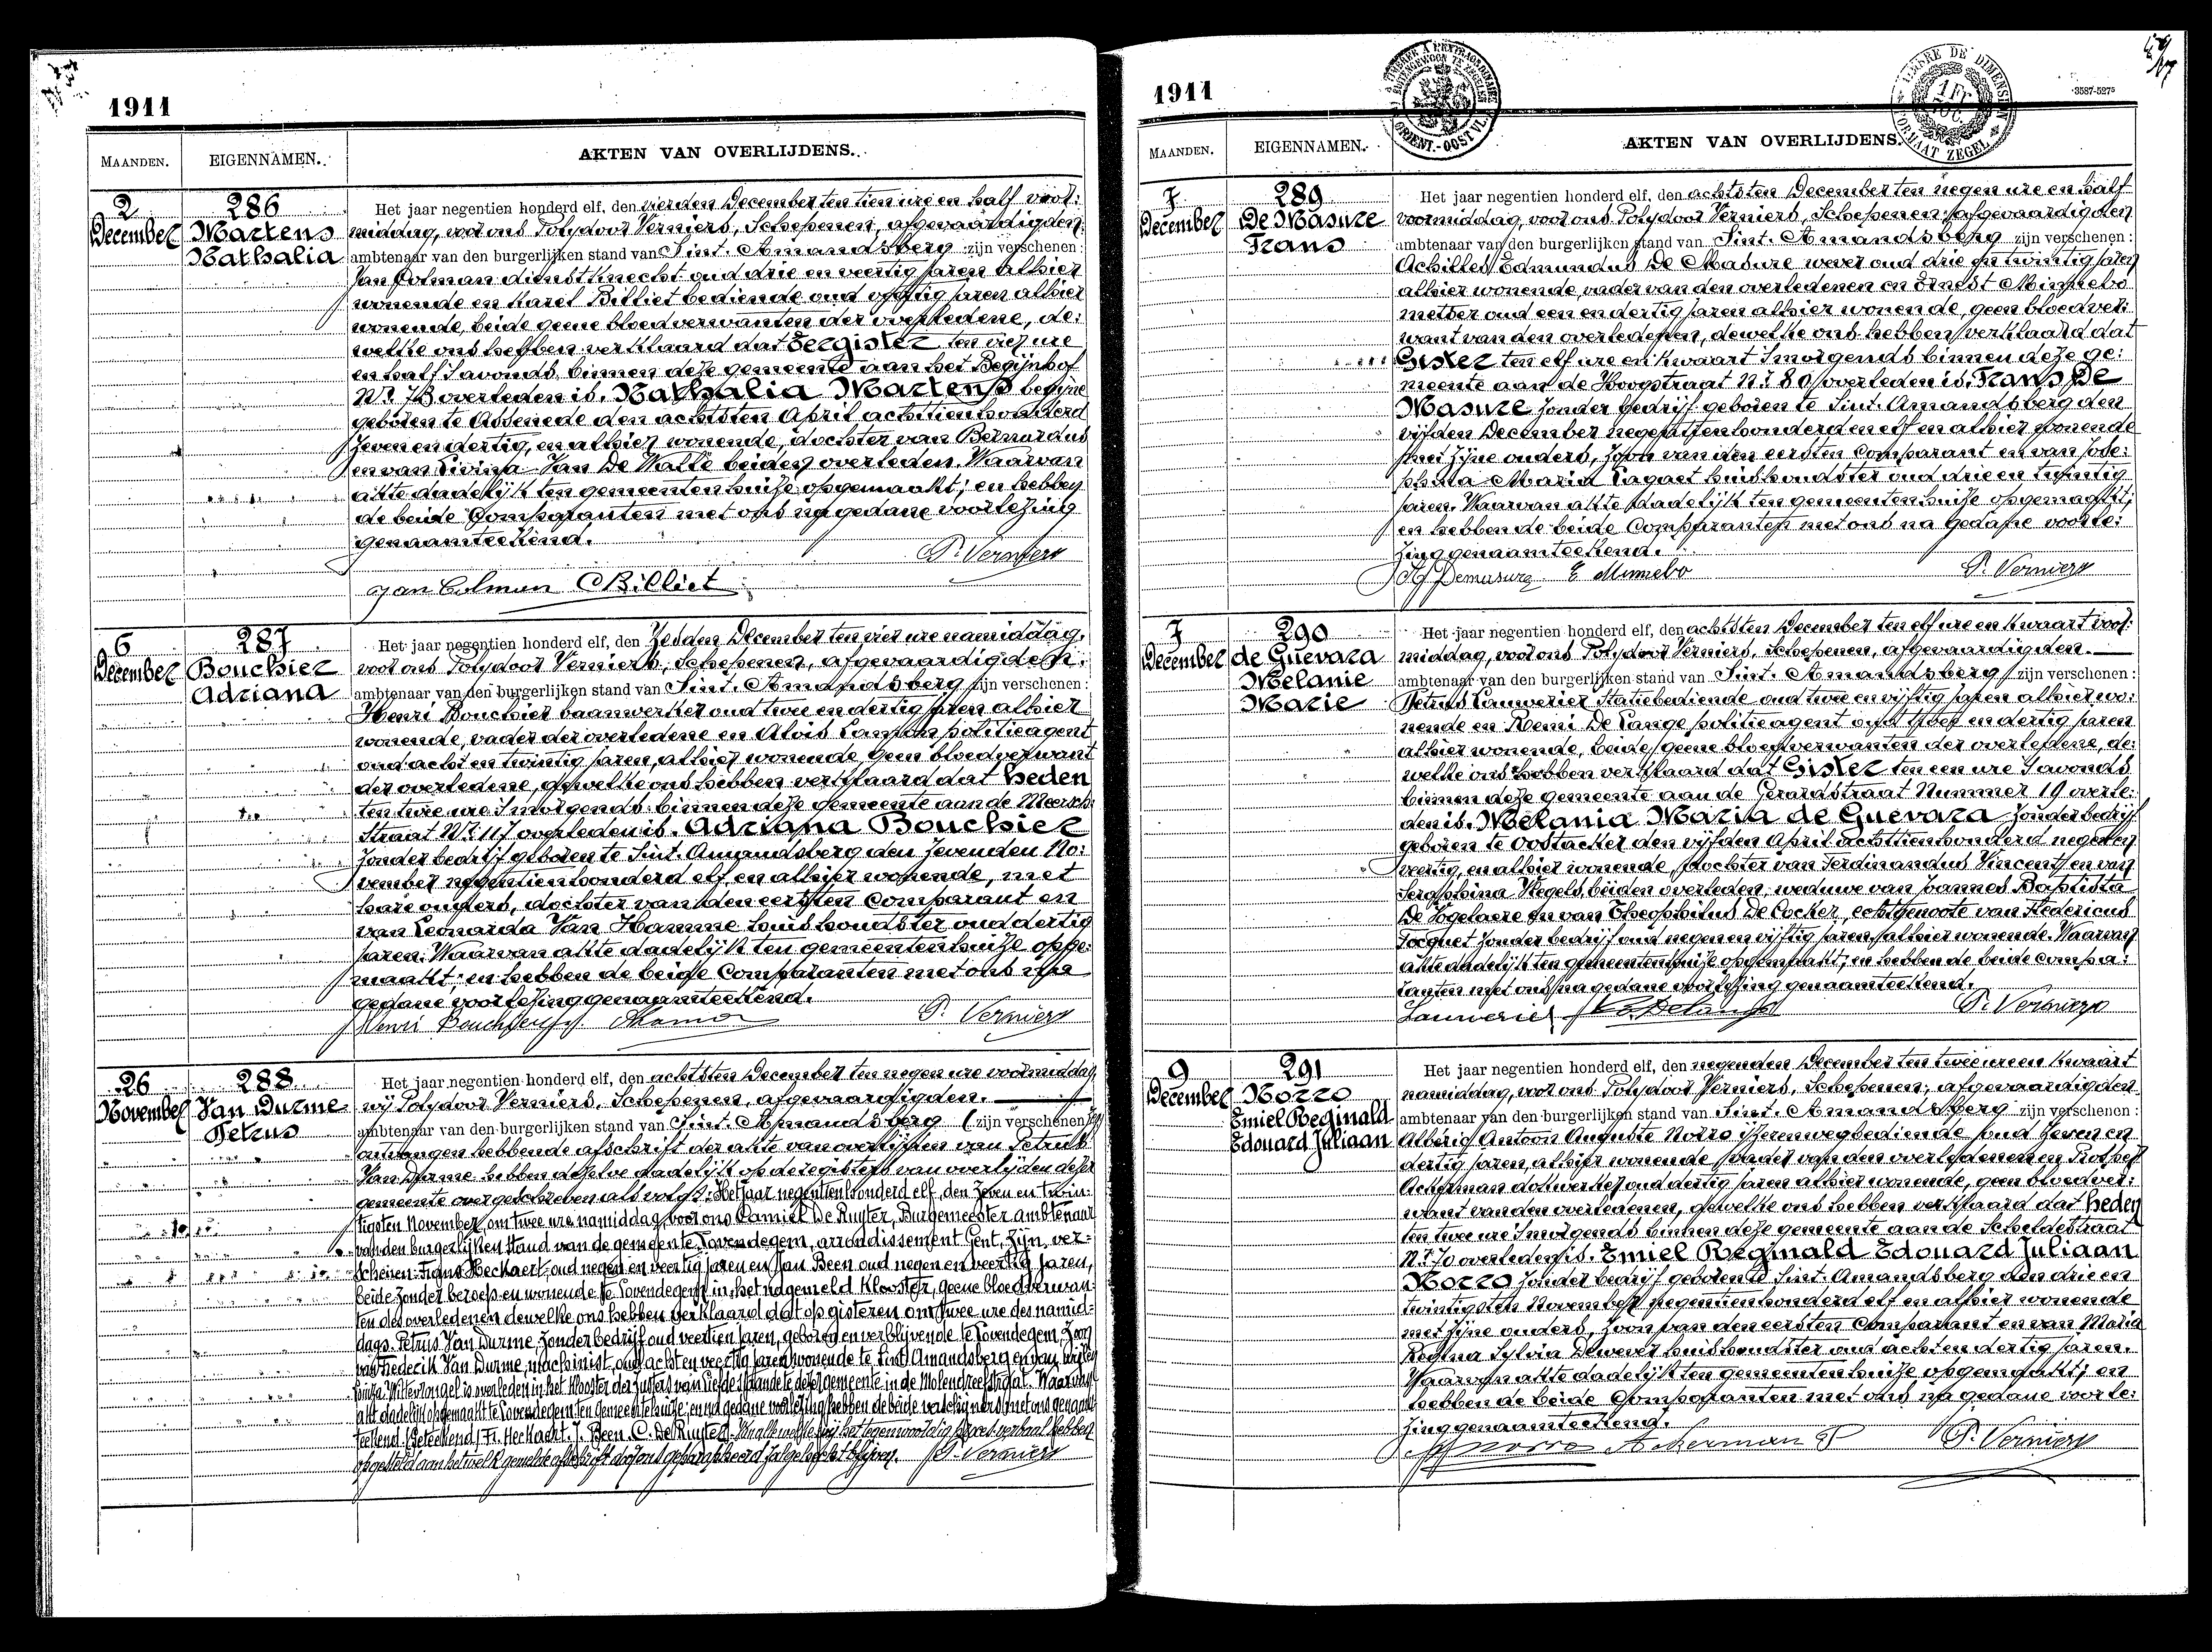 1911
MAANDEN. EIGENNAMEN. AKTEN VAN OVERLIJDENS.
2 December
286
Martens
Nathalia
Het jaar negentien honderd elf, den vierden December ten tien ure en half voor:
middag, voor ons Polydoor Verniers, Schepenen, afgevaardigden
ambtenaar van den burgerlijken stand van Sint. Amandsberg zijn verschenen:
Jan Colman dienstknecht oud drie en veertig jaren alhier
wonende en Karel Billiet bediende oud vijftig jaren alhier
wonende, beide geene bloedverwanten der overledene, de:
welke ons hebben verklaard dat Eergister ten vier ure
en half 's avonds binnen deze gemeente aan het Begijnhof
Nr. 78 overleden is. Nathalia Martens begijne
geboren te Assenede den achtsten April achttienhonderd
zeven en dertig, en alhier wonende, dochter van Bernardus
en van Livina Van De Walle beiden overleden. Waarvan
akte dadelijk ten gemeentenhuize opgemaakt; en hebben
de beide Comparanten met ons na gedane voorlezing
genaamteekend.
P. Verniers
Jan Colman CBilliet
6 December
287
Bouchier
Adriana
Het jaar negentien honderd elf, den Zesden December ten vier ure namiddag,
voor ons Polydoor Verniers, Schepenen, afgevaardigden
ambtenaar van den burgerlijken stand van Sint. Amandsberg zijn verschenen:
Henri Bouchier baanwerker oud twee en dertig jaren alhier
wonende, vader der overledene en Alois Lamon politieagent
oud acht en twintig jaren, alhier wonende geen bloedverwant
der overledene, dewelke ons hebben verklaard dat heden
ten twee ure 's morgends binnen deze gemeente aan de Meersch:
straat Nr. 117 overleden is. Adriana Bouchier
zonder bedrijf geboren te Sint. Amandsberg den zevenden No:
vember negentienhonderd elf en alhier wonende, met
hare ouders, dochter van den eersten Comparant en
van Leonarda Van Hamme huishoudster oud dertig
jaren. Waarvan akte dadelijk ten gemeentenhuize opge:
maakt; en hebben de beide Comparanten met ons na
gedane voorlezing genaamteekend.
Henri Bouchier ALamon P. Verniers
26 November
288
Van Durme
Petrus
Het jaar negentien honderd elf, den achtsten December ten negen ure voormiddag
wij Polydoor Verniers, Schepenen, afgevaardigden.
ambtenaar van den burgerlijken stand van Sint. Amandsberg (zijn verschenen
ontvangen hebbende afschrift der akte van overlijden van Petrus
Van Durme hebben dezelve dadelijk op de registers van overlijden dezer
gemeente overgeschreven als volgt: Het jaar negentienhonderd elf, den zeven en twin:
tigsten November, om twee ure namiddag, voor ons Camiel De Ruyter, Burgemeester ambtenaar
van den burgerlijken stand van de gemeente Lovendegem, arrondissement Gent, zijn, ver-
schenen Frans Heckaert, oud negen en veertig jaren en Jan Been oud negen en veertig jaren,
beide zonder beroep en wonende te Lovendegem in het nagemeld klooster, geene bloedverwan:
ten des overledenen dewelke ons hebben verklaard dat op gisteren om twee ure des namid-
dags Petrus Van Durme, zonder bedrijf, oud veertien jaren, geboren en verblijvende te Lovendegem, zoon
van Frederik Van Durme, machinist, oud acht en veertig jaren wonende te Sint Amandsberg en van wijlen
Louiza Wittevrongel is overleden in het klooster der Zusters van Liefde staande te dezer gemeente in de Molendreefstraat. Waarvan
akt dadelijk opgemaakt te Lovendegem ten gemeentehuize; en na gedane voorlezing hebben de beide verschijners met ons genaam
teekend. (Geteekend) Fr. Heckaert. J. Been. C. De Ruyter. Van alle welke wij het tegenwoordig proces-verbaal hebben
opgesteld aan hetwelk gemelde afschrift door ons geparapheerd zal gehecht blijven. P. Verniers
1911
TIMBRE A L'EXTRAORDINAIRE
BUITENGEWOON TE ZEGELEN
ORIENT.-OOST VL.
TIMBRE DE DIMENSION
FORMAAT ZEGEL
1 FR
3587-5275
MAANDEN. EIGENNAMEN. AKTEN VAN OVERLIJDENS.
7 December
289
De Masure
Frans
Het jaar negentien honderd elf, den achtsten December ten negen ure en half
voormiddag, voor ons Polydoor Verniers, Schepenen, afgevaardigden
ambtenaar van den burgerlijken stand van Sint. Amandsberg zijn verschenen:
Achilles Edmundus De Masure wever oud drie en twintig jaren
alhier wonende, vader van den overledenen en Ernest Minnebo
metser oud een en dertig jaren alhier wonende, geen bloedver:
want van den overledenen, dewelke ons hebben verklaard dat
Gister ten elf ure en kwaart 's morgends binnen deze ge:
meente aan de Hoogstraat Nr. 80 overleden is. Frans De
Masure zonder bedrijf geboren te Sint. Amandsberg den
vijfden December negentienhonderd en elf en alhier wonende
met zijne ouders, zoon van den eersten Comparant en van Jose:
phina Maria Pagaet huishoudster oud drie en twintig
jaren. Waarvan akte dadelijk ten gemeentenhuize opgemaakt;
en hebben de beide Comparanten met ons na gedane voorle:
zing genaamteekend.
Demasure E Minnebo P. Verniers
7 December
290
de Guevara
Melanie
Marie
Het jaar negentien honderd elf, den achtsten December ten elf ure en kwaart voor:
middag, voor ons Polydoor Verniers, Schepenen, afgevaardigden.
ambtenaar van den burgerlijken stand van Sint. Amandsberg zijn verschenen:
Petrus Lauwerier statiebediende oud twee en vijftig jaren alhier wo:
nende en Remi De Lange politieagent oud twee en dertig jaren
alhier wonende, beide geene bloedverwanten der overledene, de:
welke ons hebben verklaard dat Gister ten een ure 's avonds
binnen deze gemeente aan de Gerardstraat Nummer 19 overle:
den is. Melania Maria de Guevara zonder bedrijf
geboren te Oostacker den vijfden April achttienhonderd negen en
veertig, en alhier wonende, dochter van Ferdinandus Vincent en van
Seraphina Wegels, beiden overleden, weduwe van Joannes Baptista
De Vogelaere en van Theophilus De Cocker, echtgenoote van Fredericus
Tocquet zonder bedrijf oud negen en vijftig jaren, alhier wonende. Waarvan
akte dadelijk ten gemeentenhuize opgemaakt; en hebben de beide compa:
ranten met ons na gedane voorlezing genaamteekend.
Lauwerier R. Delange P. Verniers
9 December
291
Norro
Emiel Reginald
Edouard Juliaan
Het jaar negentien honderd elf, den negenden December ten twee ure en kwaart
namiddag, voor ons Polydoor Verniers, Schepenen, afgevaardigden
ambtenaar van den burgerlijken stand van Sint. Amandsberg zijn verschenen:
Alberig Antoon Auguste Norro ijzerenwegbediende oud zeven en
dertig jaren, alhier wonende, vader van den overledenen en Prosper
Ackerman dokwerker oud dertig jaren alhier wonende, geen bloedver:
want van den overledenen, dewelke ons hebben verklaard dat heden
ten twee ure 's morgends binnen deze gemeente aan de Scheldestraat
Nr. 70 overleden is. Emiel Reginald Edouard Juliaan
Norro zonder bedrijf geboren te Sint. Amandsberg den drie en
twintigsten November negentienhonderd elf en alhier wonende
met zijne ouders, zoon van den eersten Comparant en van Maria
Regina Sylvia Dewever huishoudster oud acht en dertig jaren.
Waarvan akte dadelijk ten gemeentenhuize opgemaakt; en
hebben de beide Comparanten met ons na gedane voorle:
zing genaamteekend.
Norro Ackerman P P. Verniers